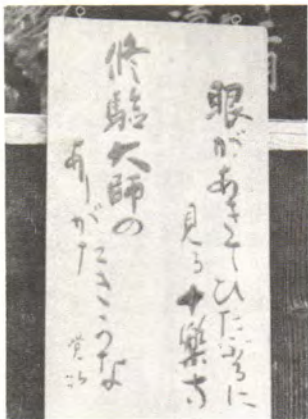 眼があきてひたぶるに
見る十樂寺
修驗大師の
ありがたきかな